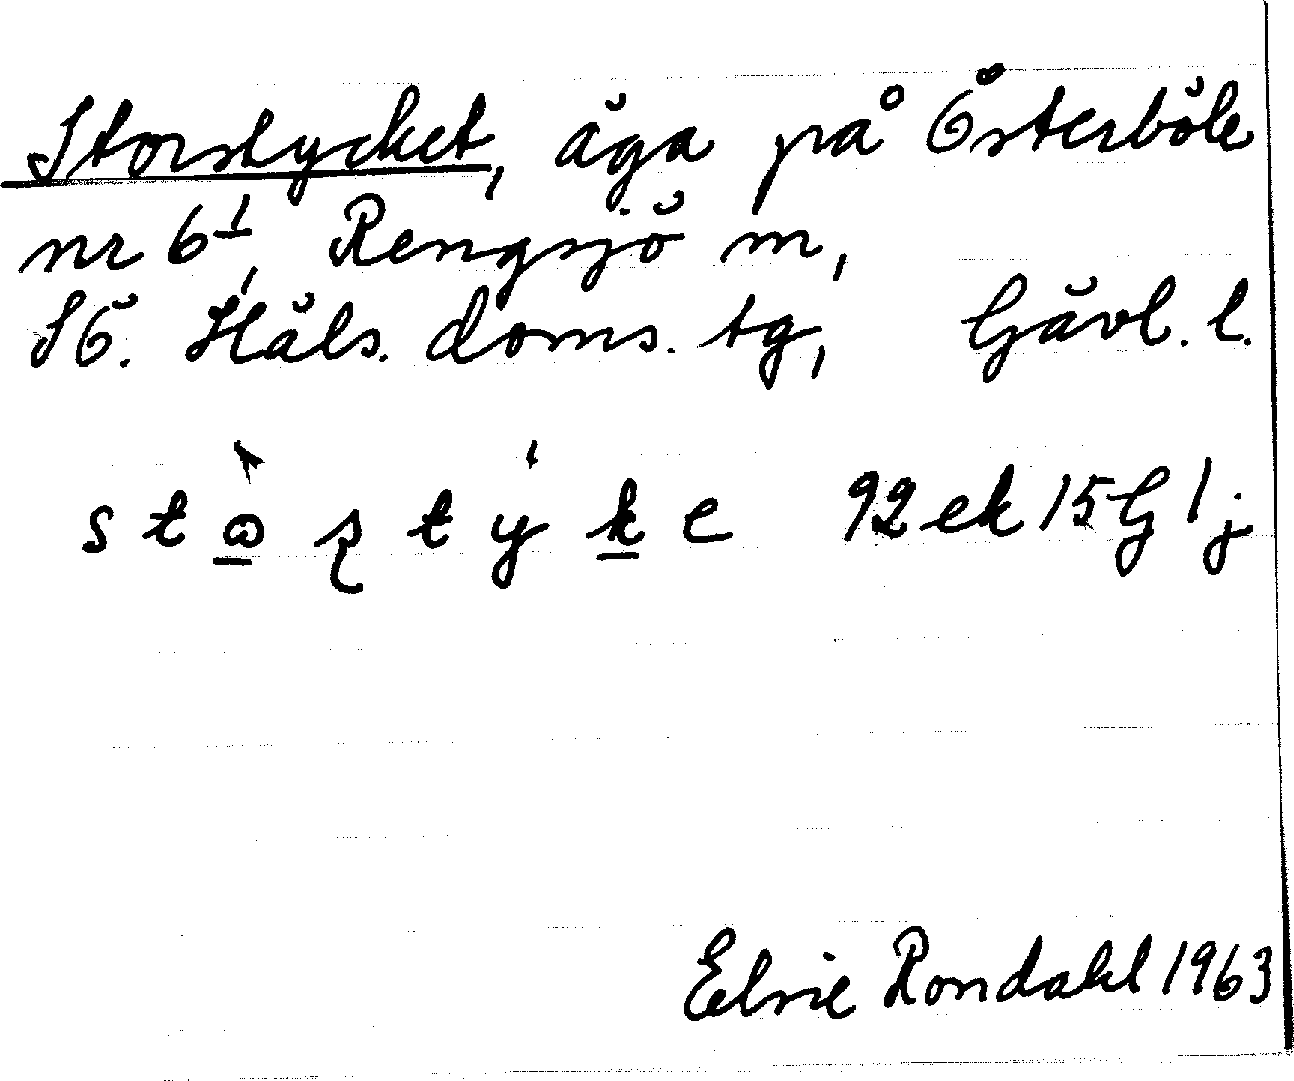 Storstycket, äga på Österböle
nr 6¹, Rengsjö m,
SÖ. Häls. doms. tg, Gävl. l.
92 ek 15 G 1 j
Elsie Rondahl 1963